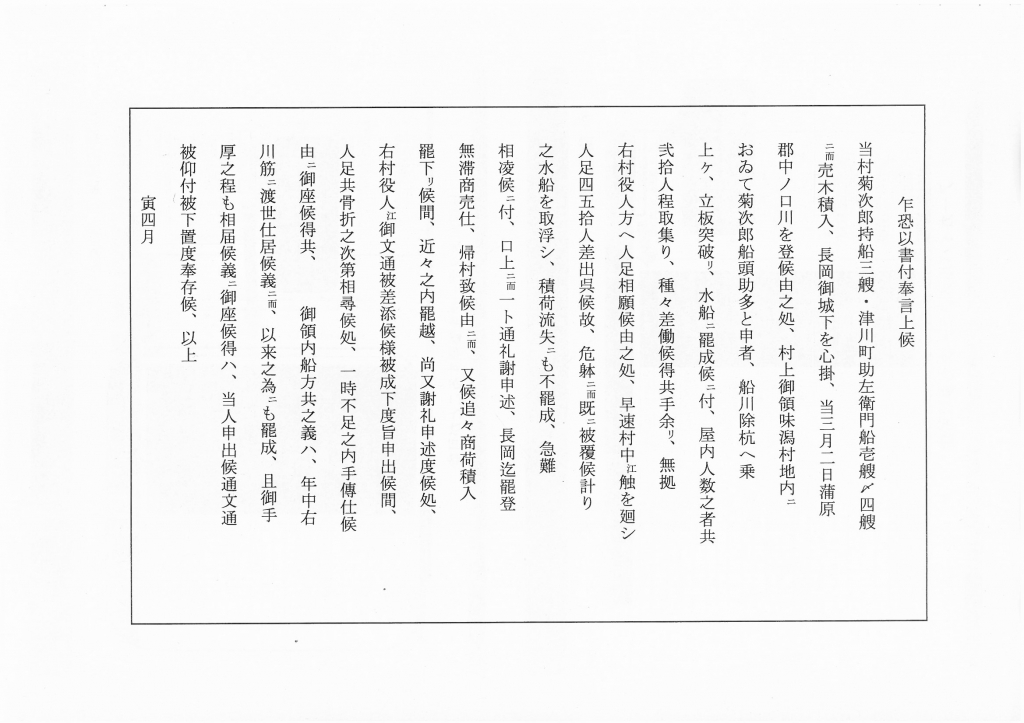 乍恐以書付奉言上候
当村菊次郎持船三艘・津川町助左衛門船壱艘〆四艘
ニ而売木積入、長岡御城下を心掛、当三月二日蒲原
郡中ノ口川を登候由之処、村上御領味潟村地内ニ
おゐて菊次郎船頭助多と申者、船川除杭へ乗
上ヶ、立板突破リ、水船ニ罷成候ニ付、屋内人数之者共
弐拾人程取集り、種々差働候得共手余リ、無拠
右村役人方へ人足相願候由之処、早速村中江触を廻シ
人足四五拾人差出呉候故、危躰ニ而既ニ被覆候計り
之水船を取浮シ、積荷流失ニも不罷成、急難
相凌候ニ付、口上ニ而一ト通礼謝申述、長岡迄罷登
無滞商売仕、帰村致候由ニ而、又候追々商荷積入
罷下リ候間、近々之内罷越、尚又謝礼申述度候処、
右村役人江御文通被差添候様被成下度旨申出候間、
人足共骨折之次第相尋候処、一時不足之内手傳仕候
由ニ御座候得共、　　御領内船方共之義ハ、年中右
川筋ニ渡世仕居候義ニ而、以来之為ニも罷成、且御手
厚之程も相届候義ニ御座候得ハ、当人申出候通文通
被仰付被下置度奉存候、以上
寅四月